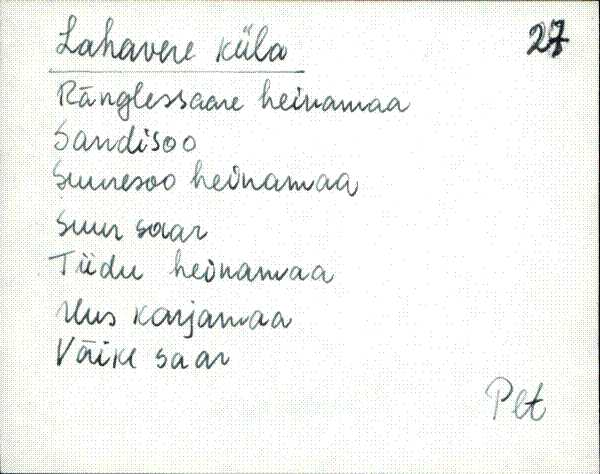 Lahavere küla 27
Ränglessaare heinamaa
Sandisoo
Suuresoo heinamaa
Suur saar
Tiidu heinamaa
Uus karjamaa
Väike saar
Plt